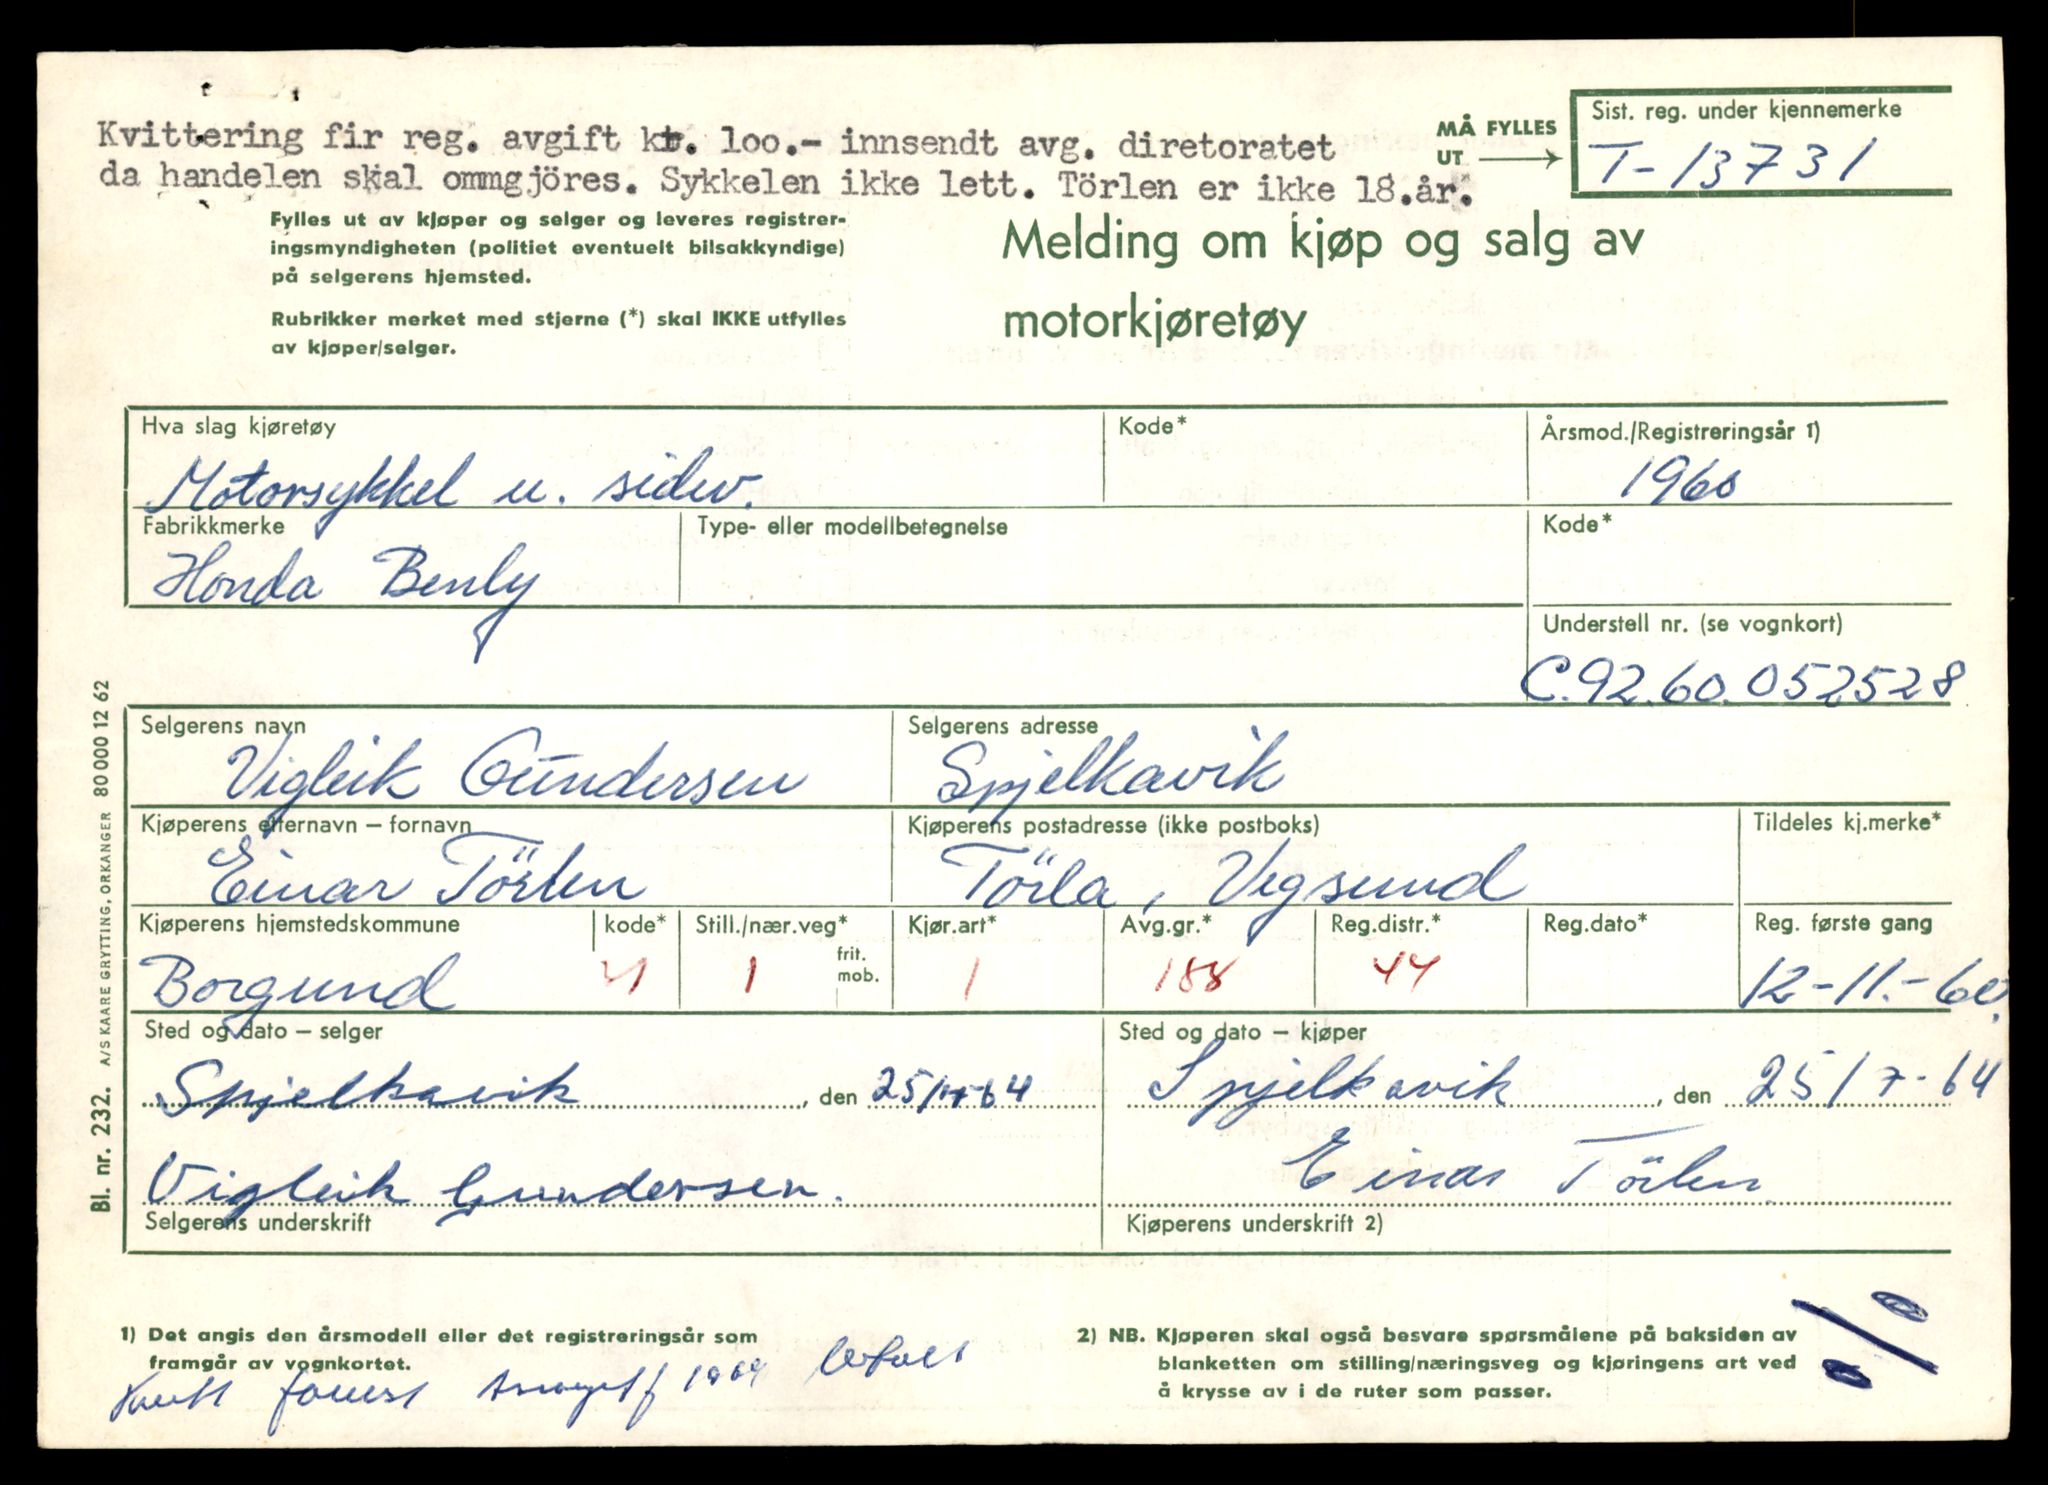 Kvittering fir reg. avgift kr. 100.- innsendt avg. diretoratet
da handelen skal ommgjöres. Sykkelen ikke lett. Törlen er ikke 18.år.
MÅ FYLLES
UT
Sist. reg. under kjennemerke
T-13731
Fylles ut av kjøper og selger og leveres registrer-
ingsmyndigheten (politiet eventuelt bilsakkyndige)
på selgerens hjemsted.
Rubrikker merket med stjerne (*) skal IKKE utfylles
av kjøper/selger.
Melding om kjøp og salg av
motorkjøretøy
Hva slag kjøretøy
Kode*
Årsmod./Registreringsår 1)
Motorsykkel u. sidev.
1960
Fabrikkmerke
Type- eller modellbetegnelse
Kode*
Honda Benly
Understell nr. (se vognkort)
C.92.60.052528
Selgerens navn
Selgerens adresse
Vigleik Gundersen
Spjelkavik
Kjøperens etternavn – fornavn
Kjøperens postadresse (ikke postboks)
Tildeles kj.merke*
Einar Törlen
Törla, Vegsund
Kjøperens hjemstedskommune
kode*
Still./nær.veg*
frit.
mob.
Kjør.art*
Avg.gr.*
Reg.distr.*
Reg.dato*
Reg. første gang
Borgund
1
1
188
44
12-11.-60.
Sted og dato – selger
Sted og dato – kjøper
Spjelkavik, den 25/7-64
Spjelkavik, den 25/7-64
Vigleik Gundersen.
Einar Törlen
Selgerens underskrift
Kjøperens underskrift 2)
1) Det angis den årsmodell eller det registreringsår som
framgår av vognkortet.
2) NB. Kjøperen skal også besvare spørsmålene på baksiden av
blanketten om stilling/næringsveg og kjøringens art ved
å krysse av i de ruter som passer.
1964
Bl. nr. 232. A/S KAARE GRYTTING, ORKANGER 80 000 12 62